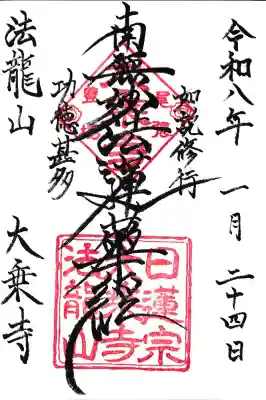 令和八年 一月 二十四日
如説修行
南無妙法蓮華経
功徳甚多
法龍山 大乗寺
日蓮宗
寺
法龍山